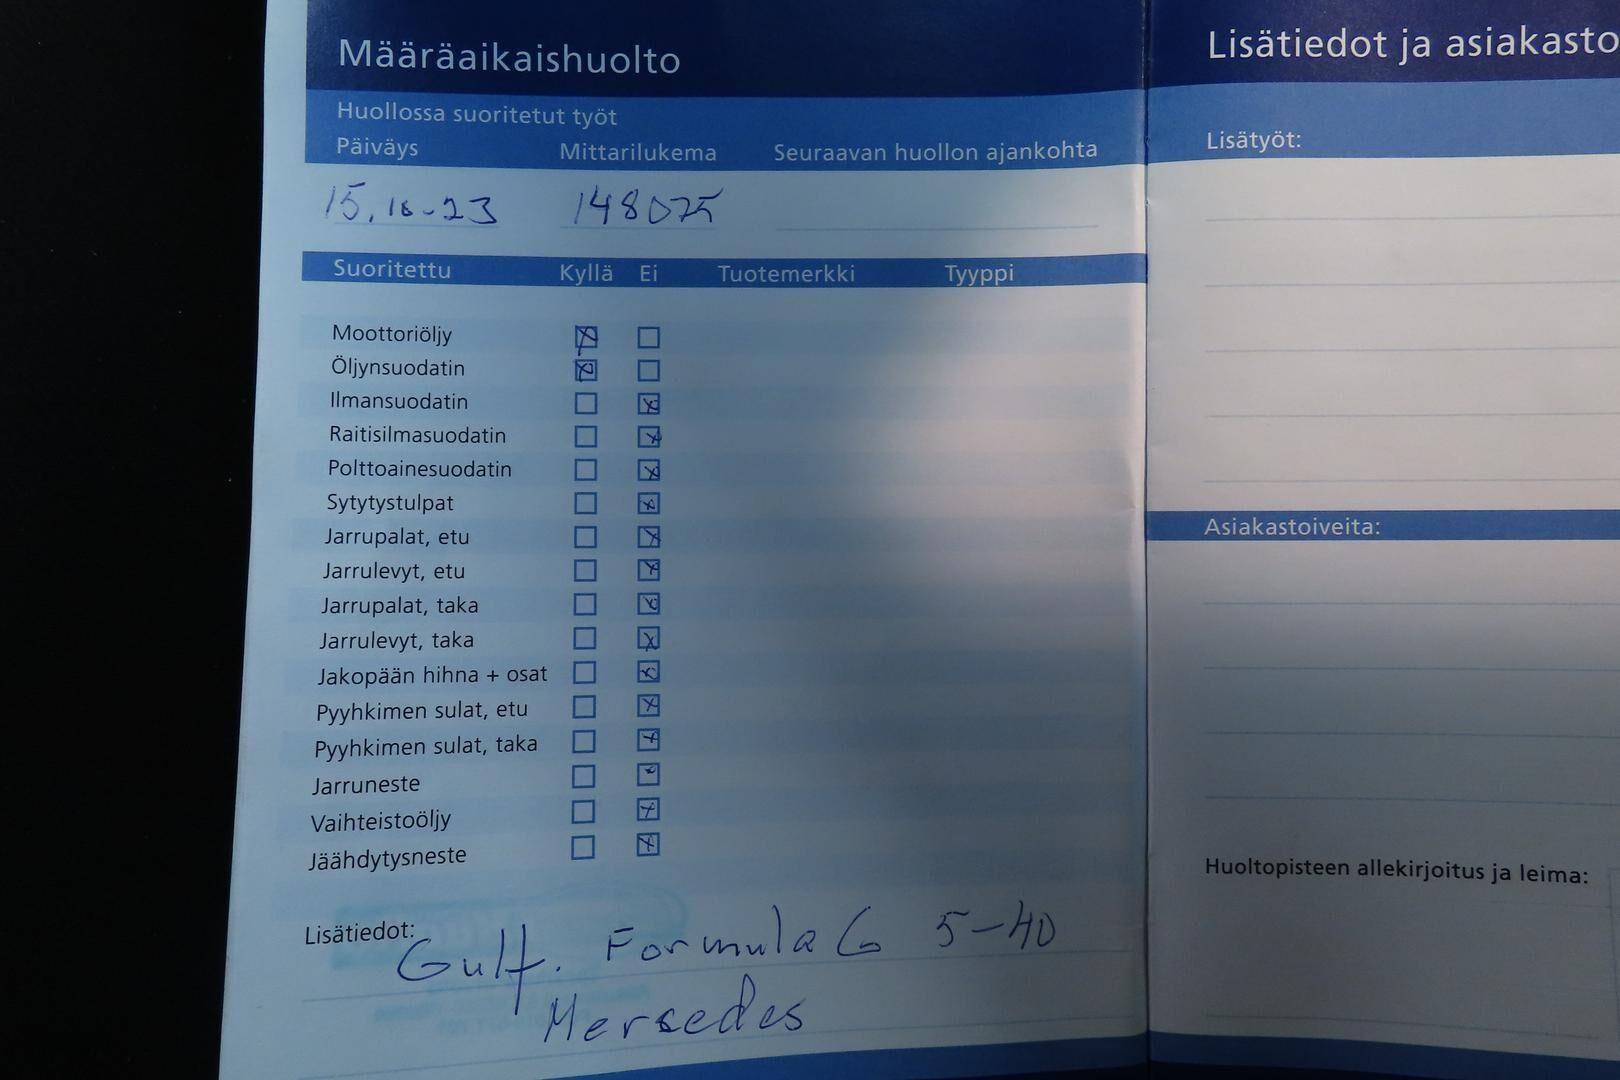 Määräaikaishuolto
Huollossa suoritetut työt
Päiväys Mittarilukema Seuraavan huollon ajankohta
15.10-23 148075
Suoritettu Kyllä Ei Tuotemerkki Tyyppi
Moottoriöljy
Öljynsuodatin
Ilmansuodatin
Raitisilmasuodatin
Polttoainesuodatin
Sytytystulpat
Jarrupalat, etu
Jarrulevyt, etu
Jarrupalat, taka
Jarrulevyt, taka
Jakopään hihna + osat
Pyyhkimen sulat, etu
Pyyhkimen sulat, taka
Jarruneste
Vaihteistoöljy
Jäähdytysneste
Lisätiedot: Gulf. Formula G 5-40
Mersedes
Lisätiedot ja asiakasto
Lisätyöt:
Asiakastoiveita:
Huoltopisteen allekirjoitus ja leima: